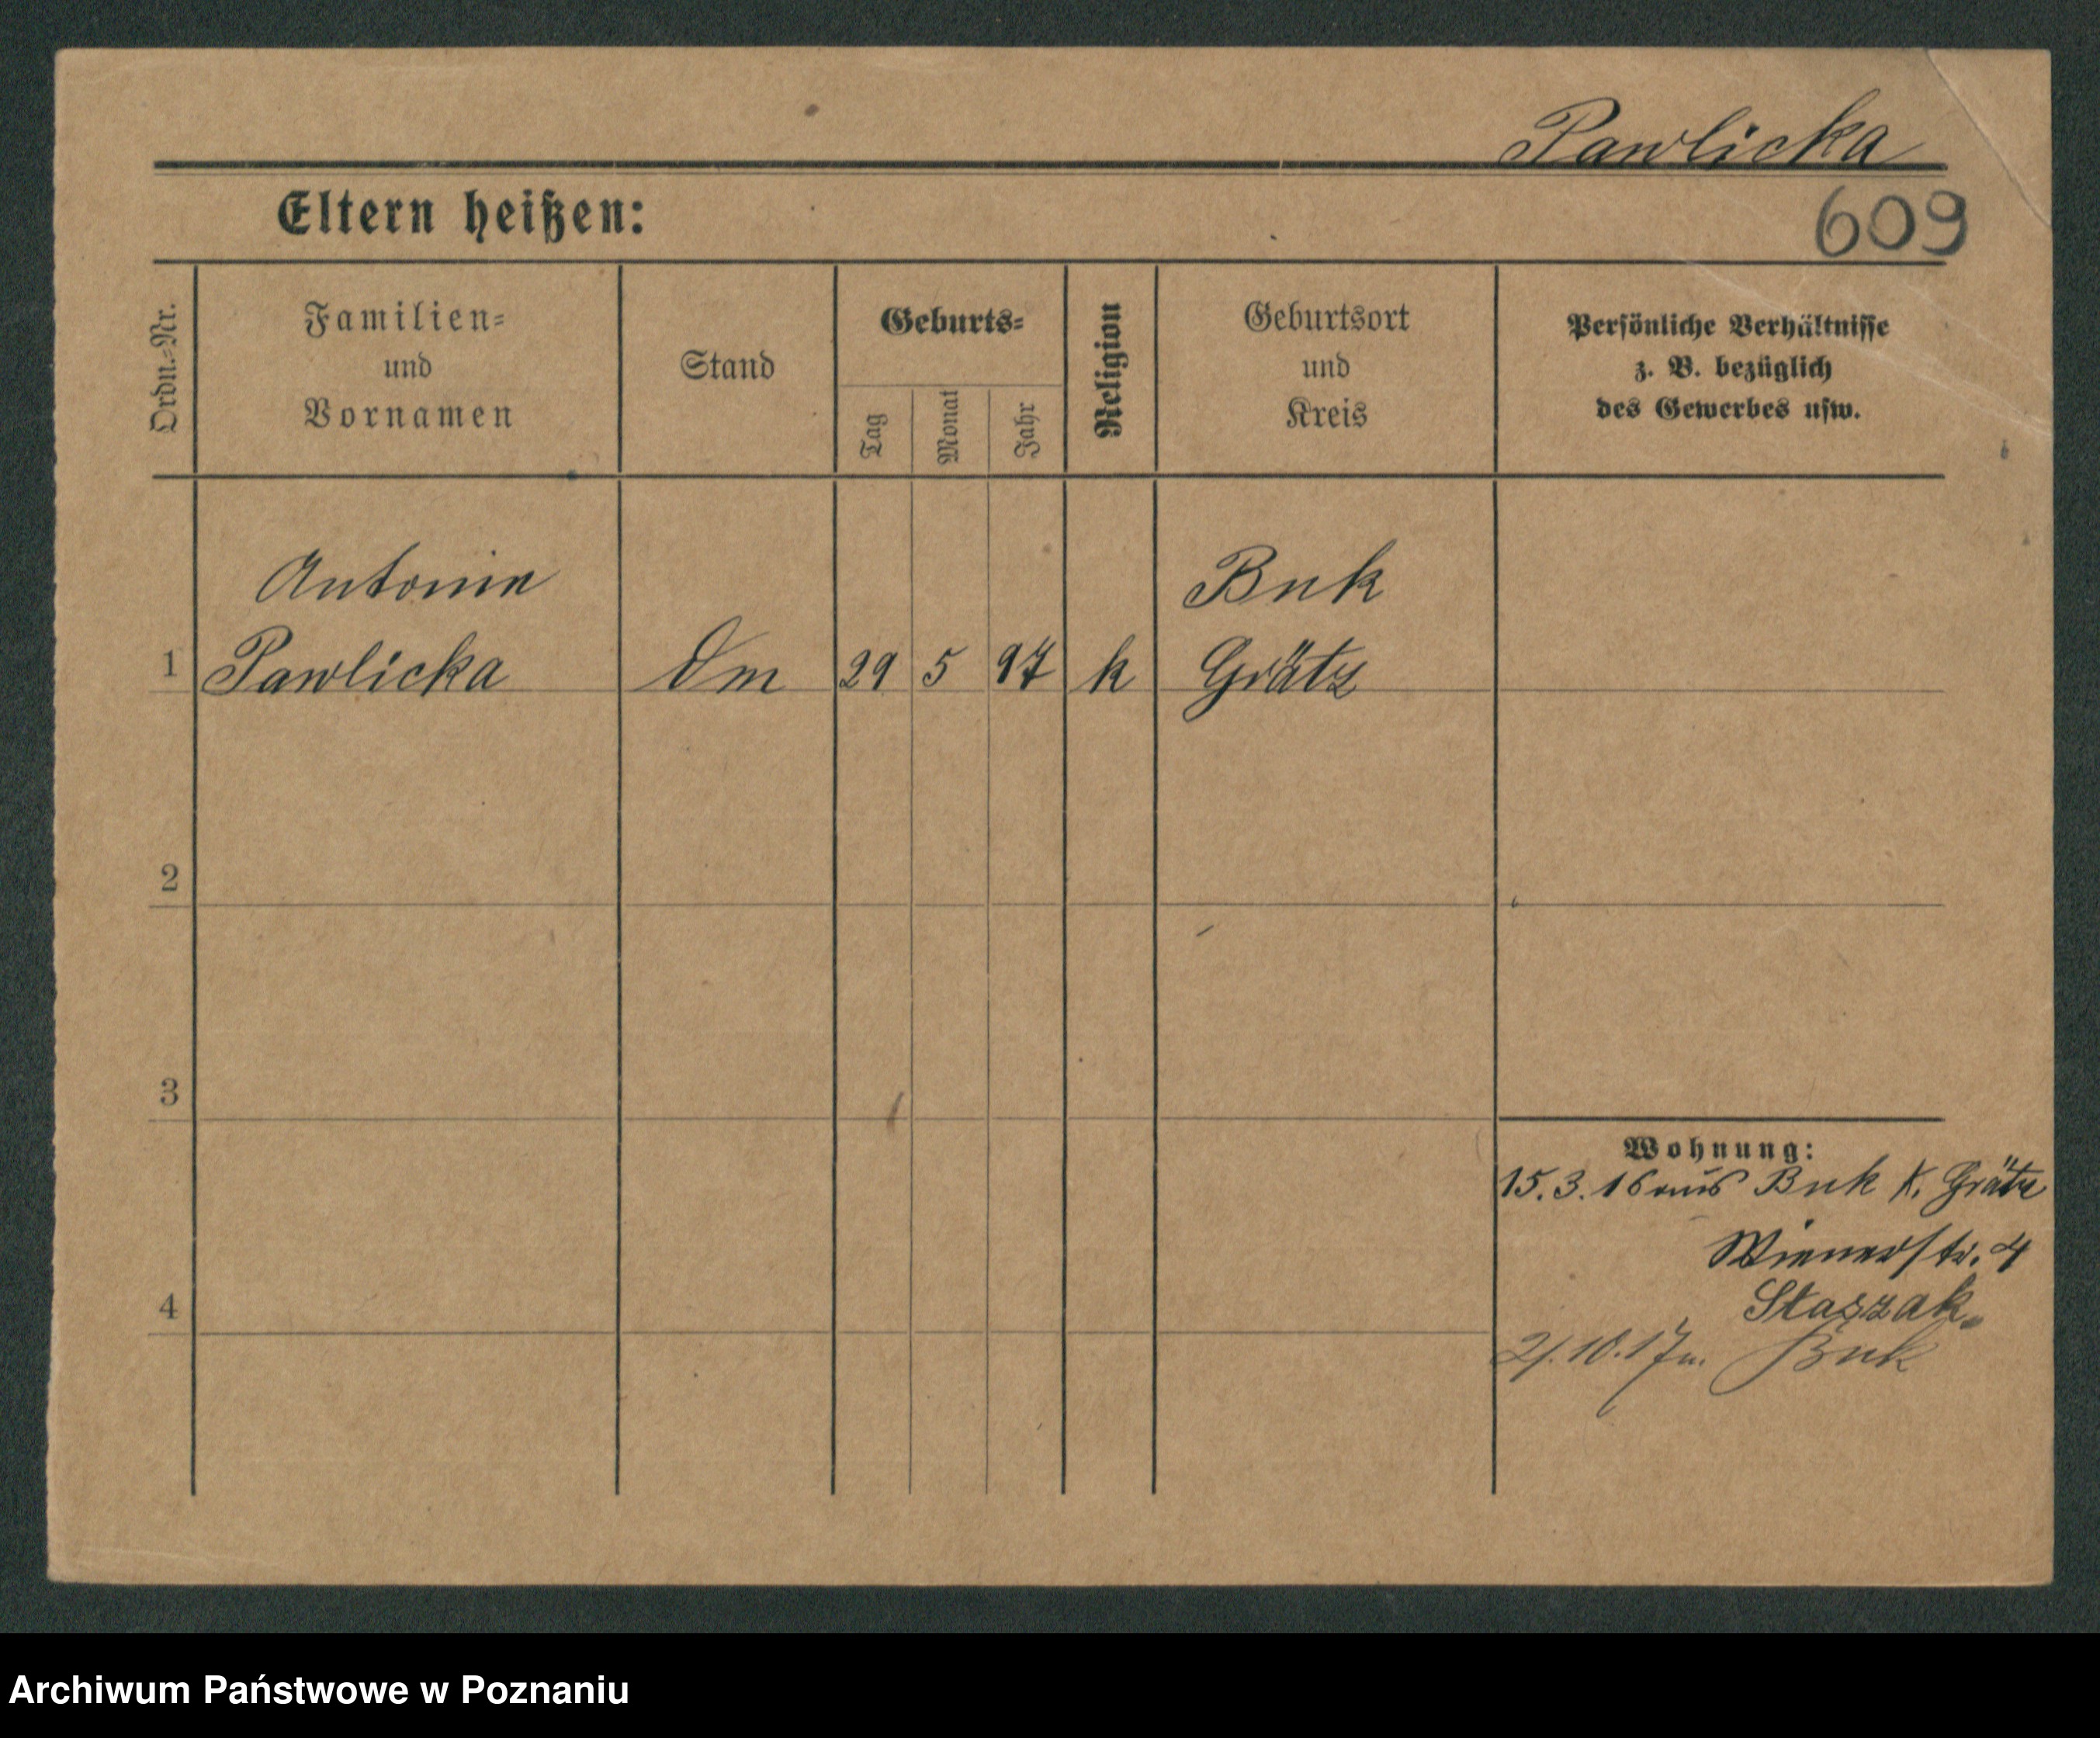 Pawlicka
Eltern heißen:
609
Ordn.-Nr.
Familien-
und
Vornamen
Stand
Geburts-
Tag
Monat
Jahr
Religion
Geburtsort
und
Kreis
Persönliche Verhältnisse
z. B. bezüglich
des Gewerbes usw.
Antonie Buk
1 Pawlicka Dm 29 5 97 k Grätz
2
3
Wohnung:
15.3.16 aus Buk K. Grätz
Wienerstr. 4
4 Staszak.
21.10.17 n. Buk
Archiwum Państwowe w Poznaniu